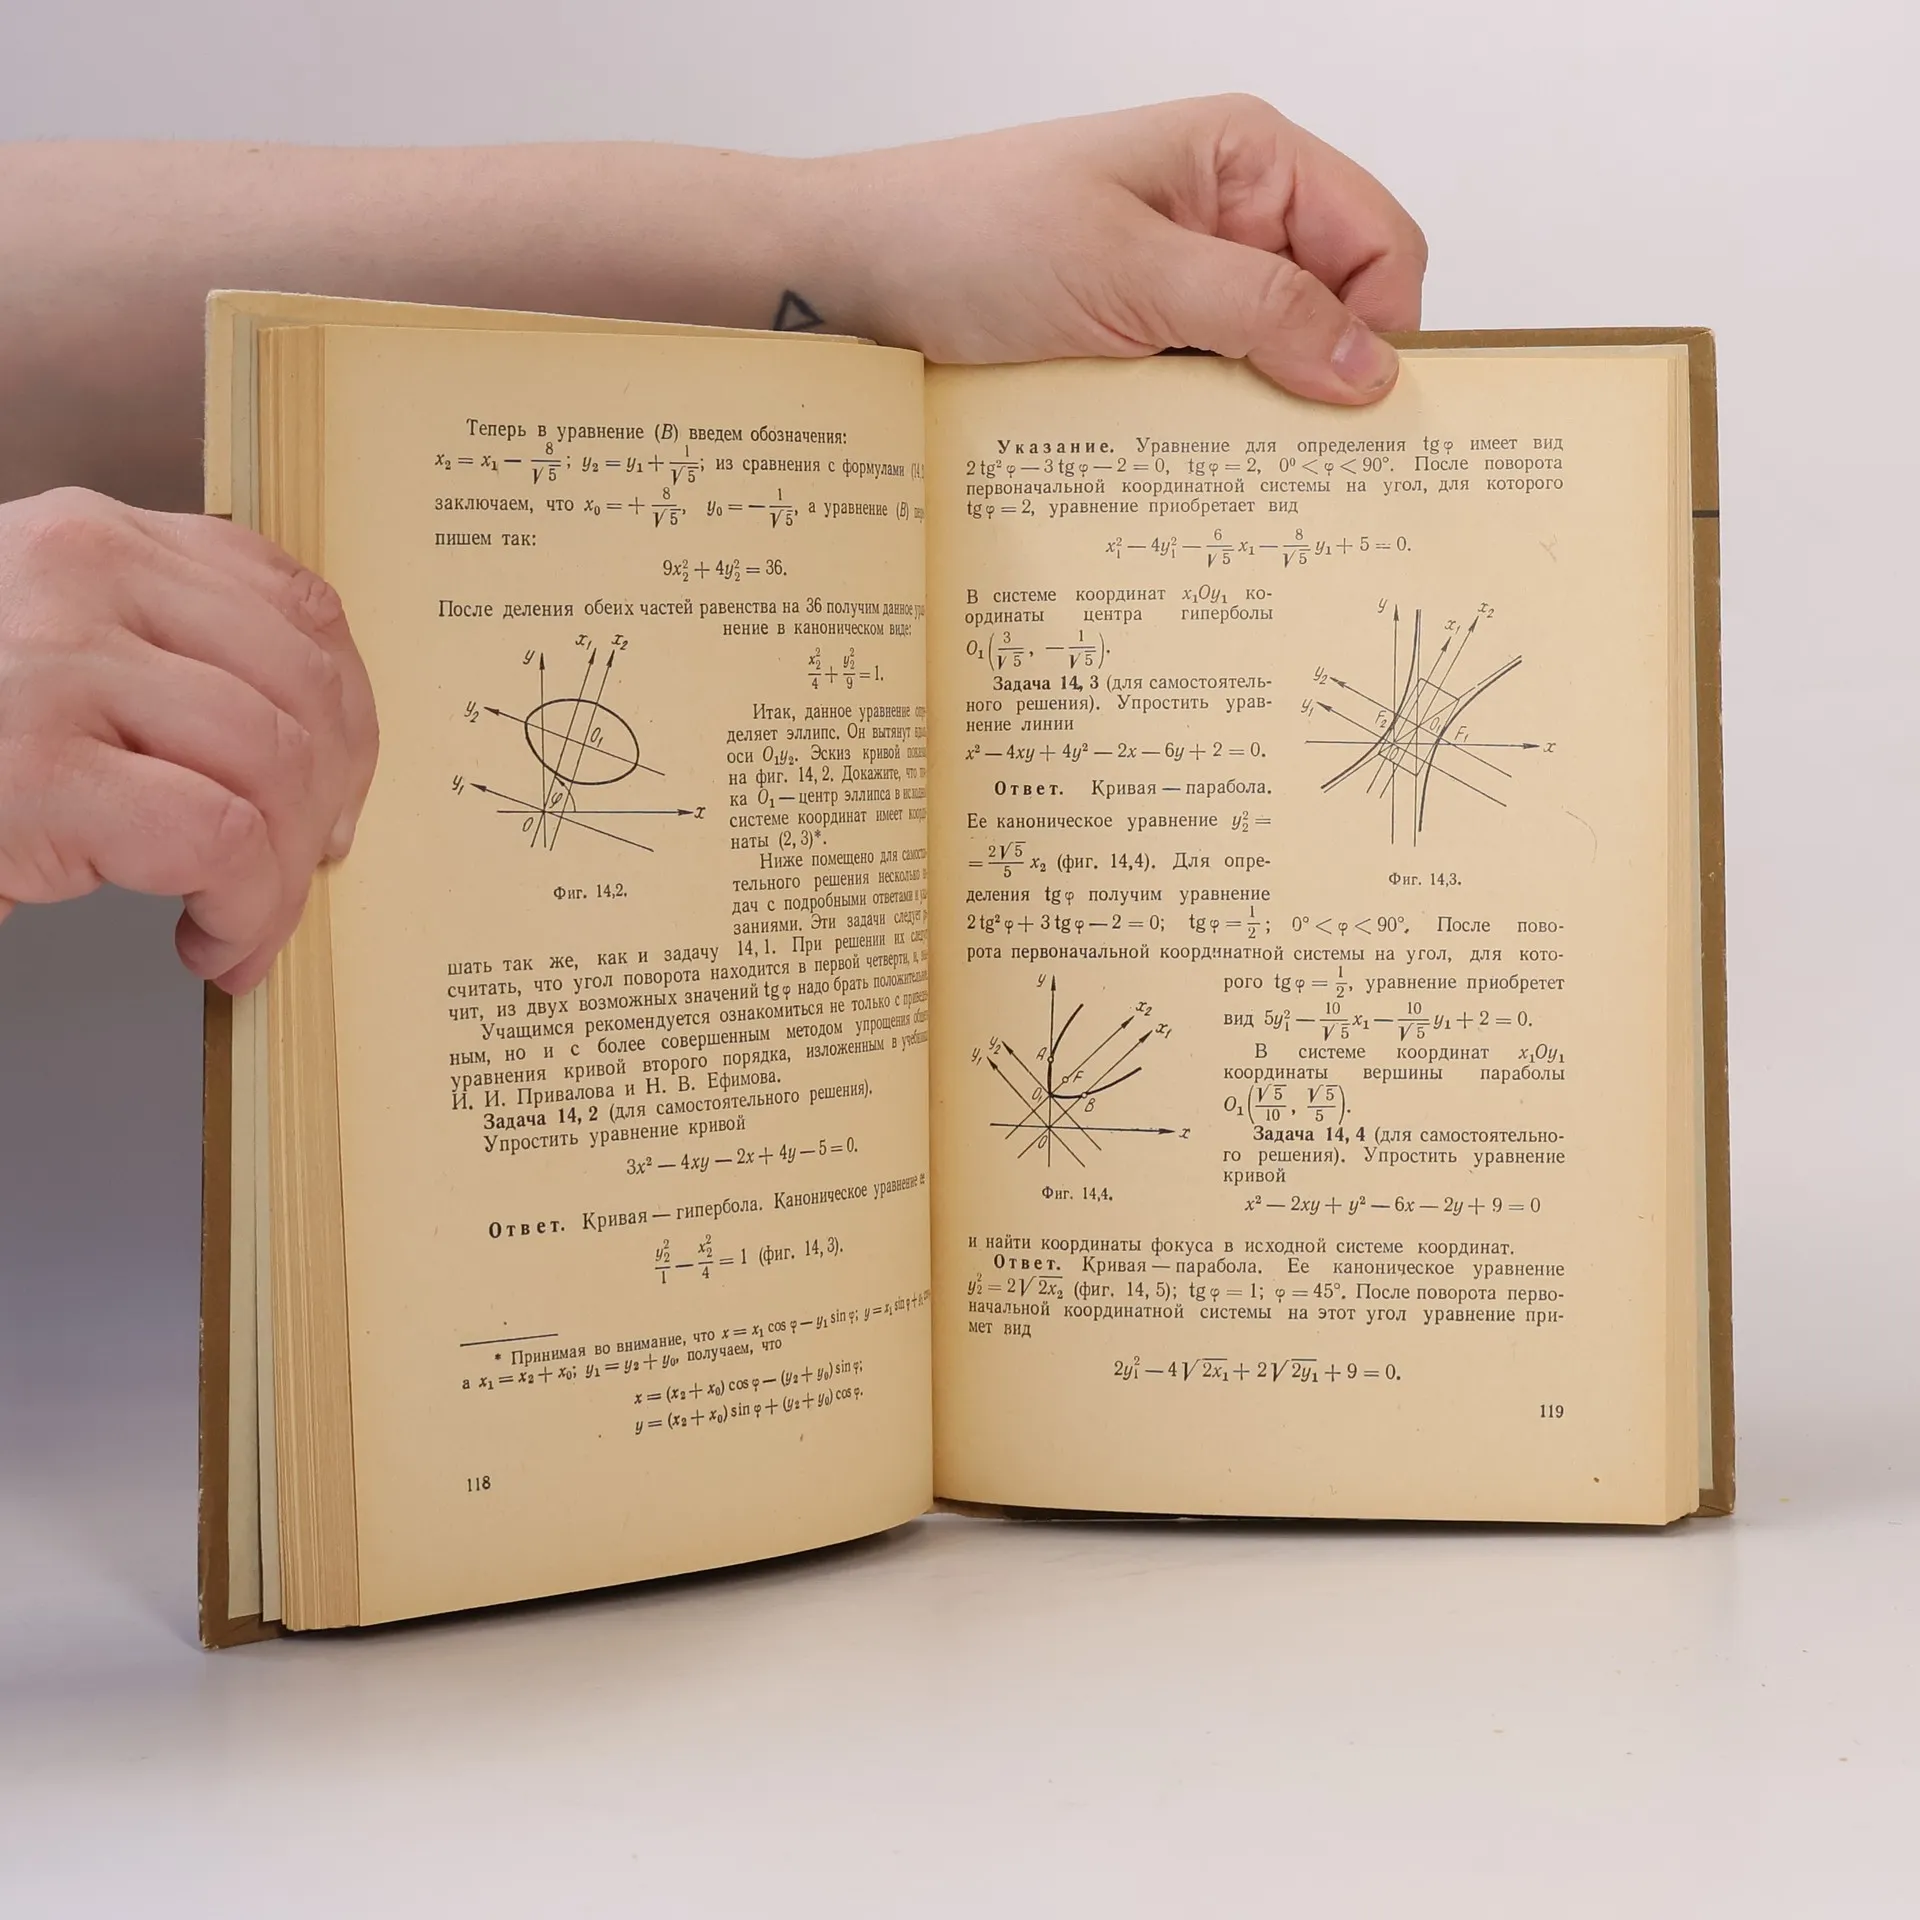 Теперь в уравнение (B) введем обозначения:
x₂ = x₁ − 8/√5; y₂ = y₁ + 1/√5; из сравнения с формулами
заключаем, что x₀ = + 8/√5, y₀ = − 1/√5, а уравнение (B)
пишем так:
9x₂² + 4y₂² = 36.
После деления обеих частей равенства на 36 получим данное
нение в каноническом виде:
x₂²/4 + y₂²/9 = 1.
y x₁ x₂
y₂ O₁
y₁ φ
O x
Фиг. 14,2.
Итак, данное уравнение
деляет эллипс. Он вытянут
оси O₁y₂. Эскиз кривой
на фиг. 14, 2. Докажите, что
ка O₁ — центр эллипса в
системе координат имеет
наты (2, 3)*.
Ниже помещено для
тельного решения несколько
дач с подробными ответами и
заниями. Эти задачи следует
шать так же, как и задачу 14, 1. При решении их
считать, что угол поворота находится в первой четверти, а,
чит, из двух возможных значений tg φ надо брать
Учащимся рекомендуется ознакомиться не только с
ным, но и с более совершенным методом упрощения
уравнения кривой второго порядка, изложенным в
И. И. Привалова и Н. В. Ефимова.
Задача 14, 2 (для самостоятельного решения).
Упростить уравнение кривой
3x² — 4xy — 2x + 4y — 5 = 0.
Ответ. Кривая — гипербола. Каноническое уравнение ее
y₂²/1 − x₂²/4 = 1 (фиг. 14, 3).
* Принимая во внимание, что x = x₁ cos φ — y₁ sin φ; y = x₁ sin φ +
а x₁ = x₂ + x₀; y₁ = y₂ + y₀, получаем, что
x = (x₂ + x₀) cos φ — (y₂ + y₀) sin φ;
y = (x₂ + x₀) sin φ + (y₂ + y₀) cos φ.
118
Указание. Уравнение для определения tg φ имеет вид
2 tg² φ — 3 tg φ — 2 = 0, tg φ = 2, 0° < φ < 90°. После поворота
первоначальной координатной системы на угол, для которого
tg φ = 2, уравнение приобретает вид
x₁² — 4y₁² — 6/√5 x₁ — 8/√5 y₁ + 5 = 0.
В системе координат x₁Oy₁ ко-
ординаты центра гиперболы
O₁(3/√5, — 1/√5).
Задача 14, 3 (для самостоятель-
ного решения). Упростить урав-
нение линии
x² — 4xy + 4y² — 2x — 6y + 2 = 0.
Ответ. Кривая — парабола.
Ее каноническое уравнение y₂² =
= 2√5/5 x₂ (фиг. 14,4). Для опре-
деления tg φ получим уравнение
y x₁ x₂
y₂
y₁ F₂ O₁ F₁
O x
Фиг. 14,3.
2 tg² φ + 3 tg φ — 2 = 0; tg φ = 1/2; 0° < φ < 90°. После пово-
рота первоначальной координатной системы на угол, для кото-
y x₂
y₁ y₂ A x₁
F
O₁ B
O x
Фиг. 14,4.
рого tg φ = 1/2, уравнение приобретет
вид 5y₁² — 10/√5 x₁ — 10/√5 y₁ + 2 = 0.
В системе координат x₁Oy₁
координаты вершины параболы
O₁(√5/10, √5/5).
Задача 14, 4 (для самостоятельно-
го решения). Упростить уравнение
кривой
x² — 2xy + y² — 6x — 2y + 9 = 0
и найти координаты фокуса в исходной системе координат.
Ответ. Кривая — парабола. Ее каноническое уравнение
y₂² = 2√2x₂ (фиг. 14, 5); tg φ = 1; φ = 45°. После поворота перво-
начальной координатной системы на этот угол уравнение при-
мет вид
2y₁² — 4√2x₁ + 2√2y₁ + 9 = 0.
119